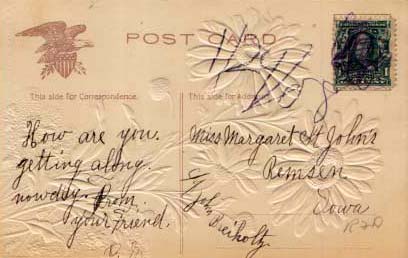 POST CARD
This side for Correspondence.
This side for Address
How are you.
getting along.
nowday. From.
your Friend.
Miss Margaret St Johns
Remsen
Iowa
John